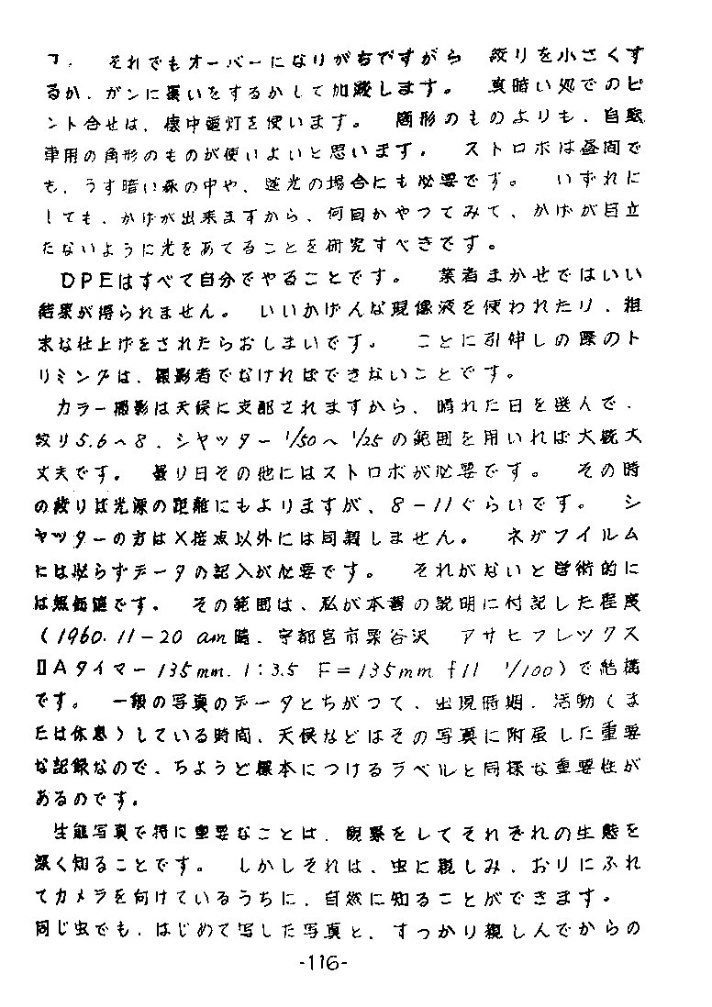 フ．　それでもオーバーになりがちですがら　絞りを小さくす
るか．ガンに覆いをするかして加減します。　真暗い処でのピ
ント合せは、懐中電灯を使います。　筒形のものよりも．自転
車用の角形のものが使いよいと思います。　ストロボは昼間で
も．うす暗い森の中や、逆光の場合にも必要です。　いずれに
しても．かげが出来ますから、何回かやつてみて、かげが目立
たないように光をあてることを研究すべきです。
ＤＰＥはすべて自分でやることです。　業者まかせではいい
結果が得られません。　いいかげんな現像液を使われたり．粗
末な仕上げをされたらおしまいです。　ことに引伸しの際のト
リミングは、撮影者でなければできないことです。
カラー撮影は天候に支配されますから、晴れた日を選んで．
絞り5.6〜8．シヤッター1/50〜1/25の範囲を用いれば大概大
丈夫です。　曇り日その他にはストロボが必要です。　その時
の絞りは光源の距離にもよりますが、8－11ぐらいです。　シ
ヤッターの方はX接点以外には同調しません。　ネガフイルム
には必らずデータの記入が必要です。　それがないと学術的に
は無価値です。　その範囲は、私が本書の説明に付記した程度
（1960.11－20 am晴．宇都宮市栗谷沢　アサヒフレックス
ⅡAタイマー135mm. 1：3.5 F＝135mm f11 1/100）で結構
です。　一般の写真のデータとちがつて、出現時期．活動（ま
たは休息）している時間、天候などはその写真に附属した重要
な記録なので、ちようど標本につけるラベルと同様な重要性が
あるのです。
生態写真で特に重要なことは．観察をしてそれぞれの生態を
深く知ることです。　しかしそれは、虫に親しみ．おりにふれ
てカメラを向けているうちに．自然に知ることができます。
同じ虫でも．はじめて写した写真と、すっかり親しんでからの
-116-